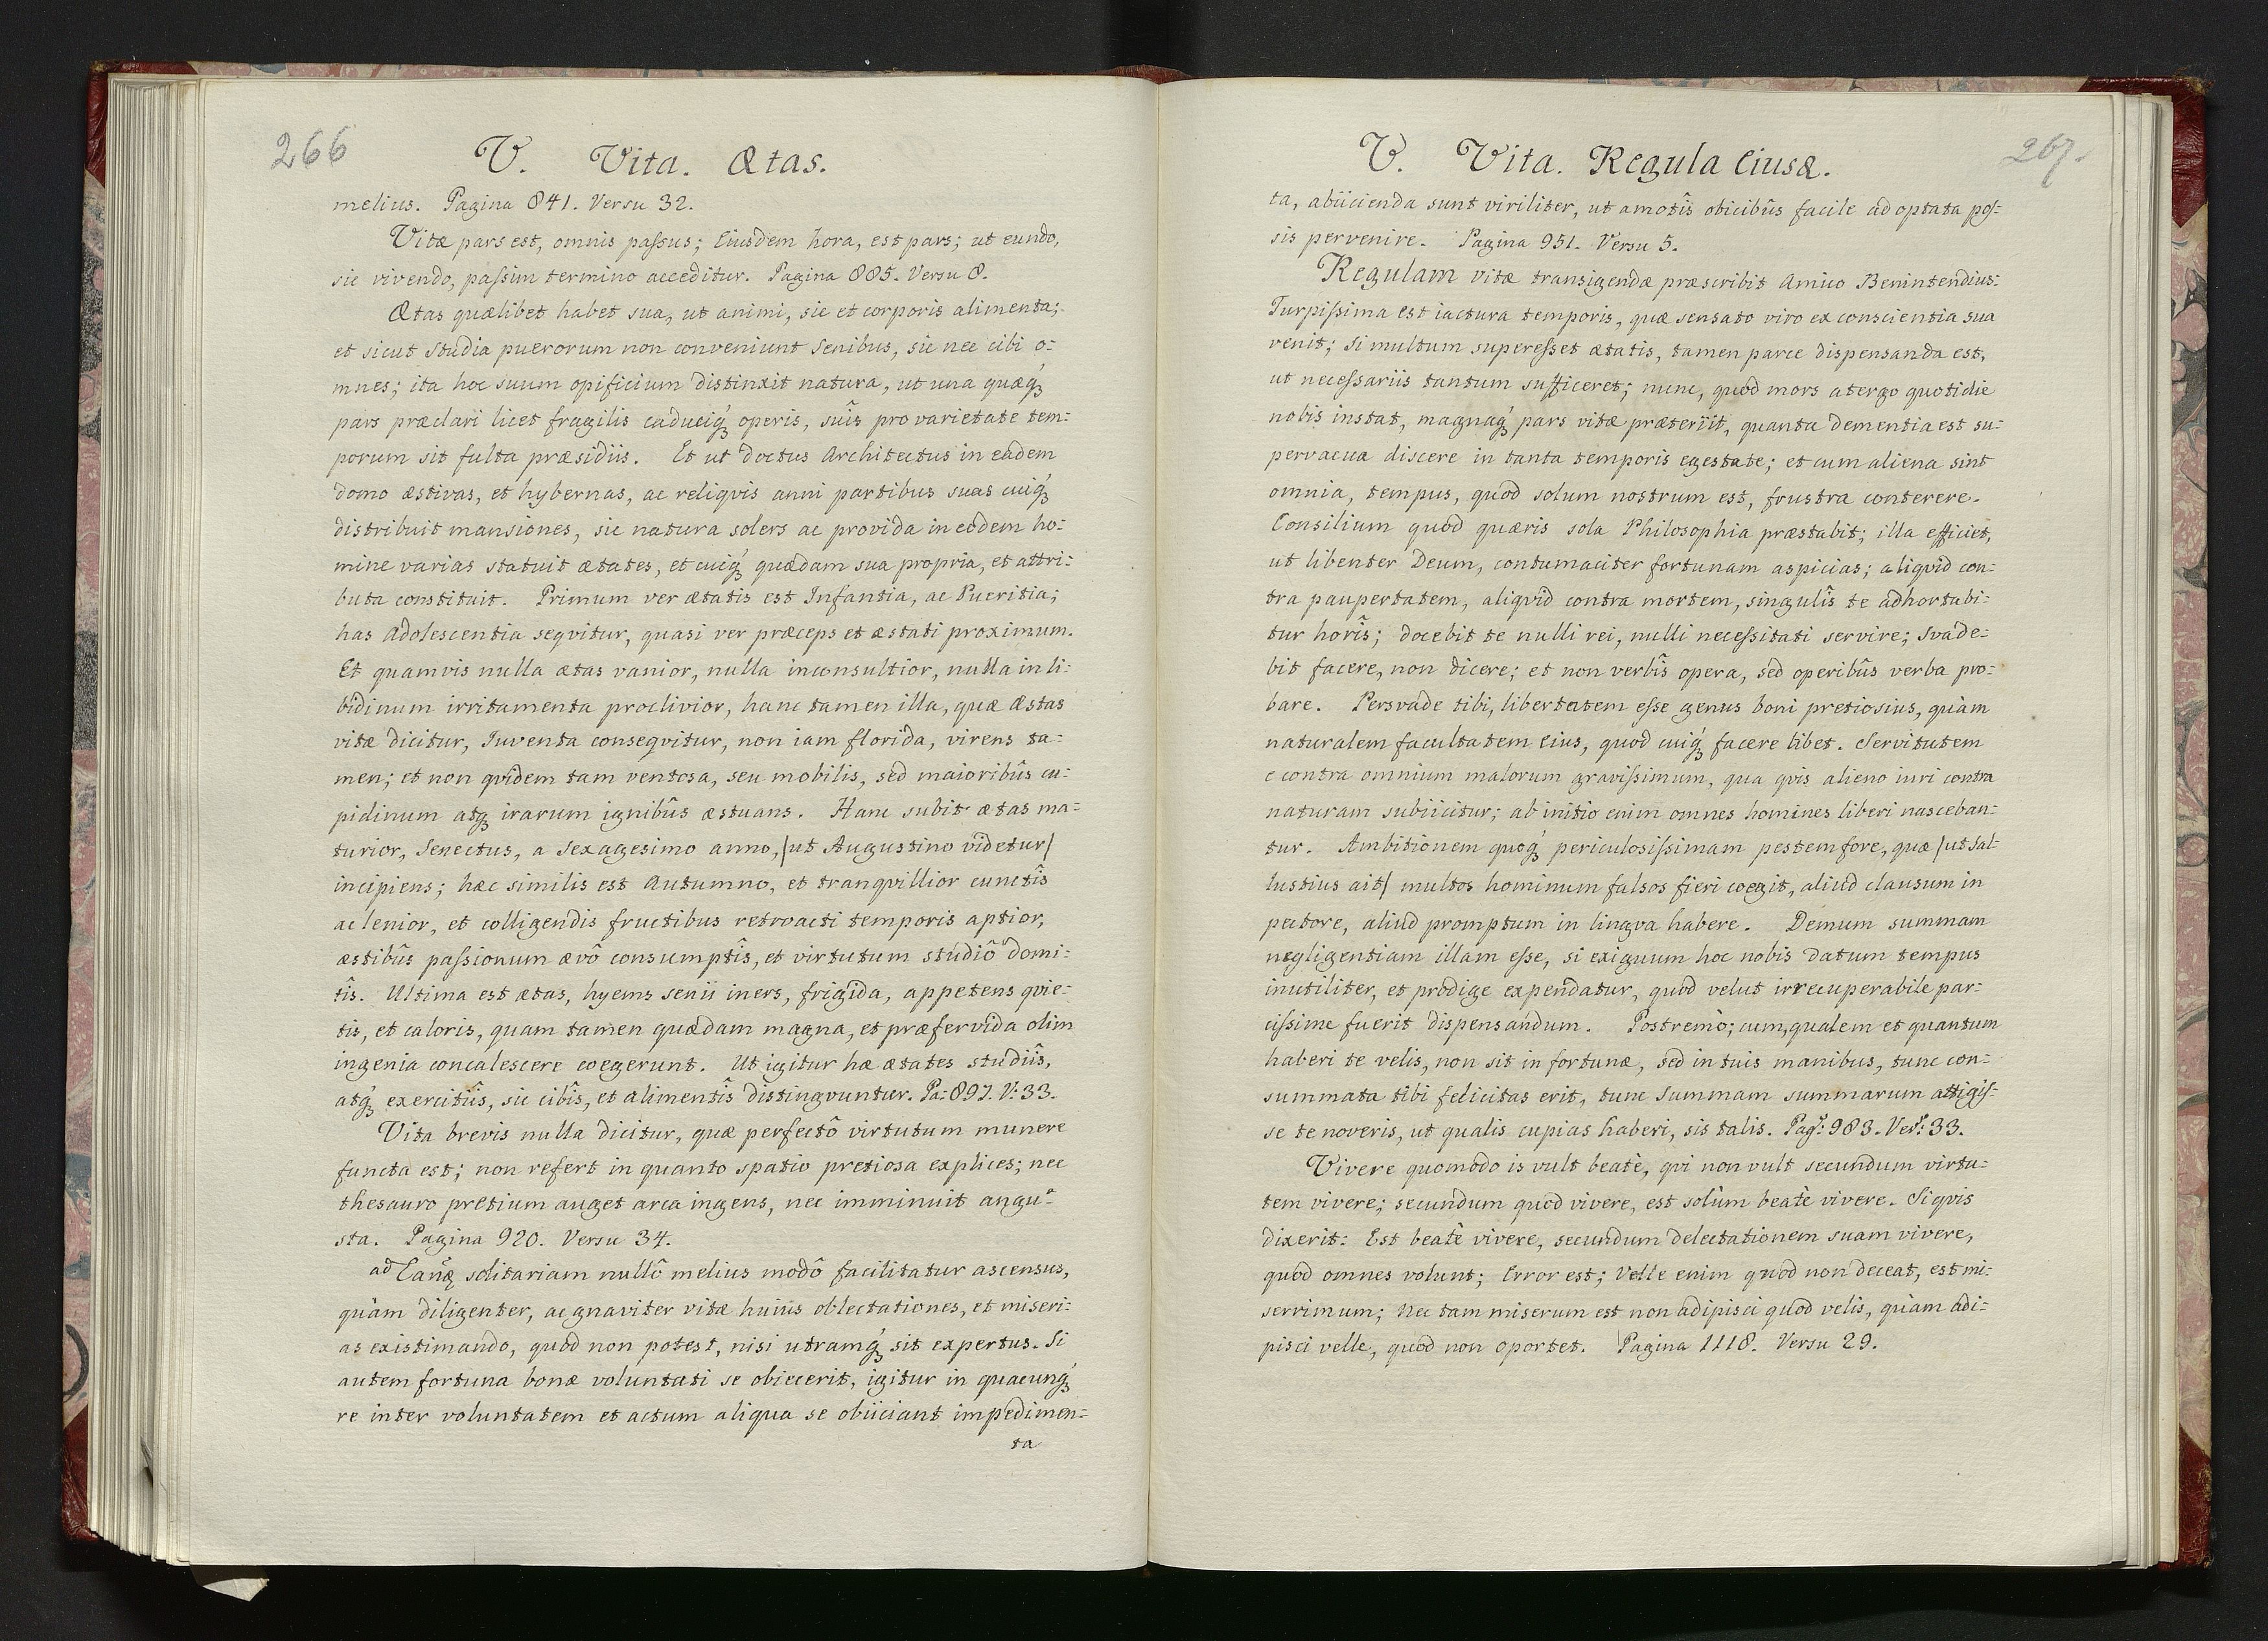 266
V. Vita. Ætas.
melius. Pagina 841. Versu 32.
Vitæ pars est, omnis passus; Eiusdem hora, est pars; ut eundo,
sic vivendo, passim termino acceditur. Pagina 885. Versu 8.
Ætas quælibet habet sua, ut animi, sic et corporis alimenta;
et sicut studia puerorum non conveniunt Senibus, sic nec cibi o=
mnes; ita hoc suum opificium distinxit natura, ut una quæq́
pars præclari licet fragilis caduciq́ operis, suîs pro varietate tem=
porum sit fulta præsidiis. Et ut doctus Architectus in eadem
domo æstivas, et hybernas, ac reliqvis anni partibus suas cuiq́
distribuit mansiones, sic natura solers ac provida in eodem ho=
mine varias statuit ætates, et cuiq́ quædam sua propria, et attri=
buta constituit. Primum ver ætatis est Infantia, ac Pueritia;
has Adolescentia seqvitur, quasi ver præceps et æstati proximum.
Et quamvis nulla ætas vanior, nulla inconsultior, nulla in li=
bidinum irritamenta proclivior, hanc tamen illa, quæ Æstas
vitæ dicitur, Iuventa conseqvitur, non iam florida, virens ta=
men; et non qvidem tam ventosa, seu mobilis, sed maioribûs cu=
pidinum atq́ irarum ignibûs æstuans. Hanc subit ætas ma=
turior, Senectus, a Sexagesimo anno, /ut Augustino videtur/
incipiens; hæc similis est Autumno, et tranqvillior cunctîs
ac lenior, et colligendis fructibus retroacti temporis aptior,
æstibûs passionum ævô consumptîs, et virtutum studiô domi=
tîs. Ultima est ætas, hyems senii iners, frigida, appetens qvie=
tis, et caloris, quam tamen quædam magna, et præfervida olim
ingenia concalescere coegerunt. Ut igitur hæ ætates studiîs,
atq́ exercitiîs, sic cibîs, et alimentîs distingvuntur. Pa: 897. V: 33.
Vita brevis nulla dicitur, quæ perfectô virtutum munere
functa est; non refert in quanto spatio pretiosa explices; nec
thesauro pretium auget arca ingens, nec imminuit angu=
sta. Pagina 920. Versu 34.
ad Eanq́ solitariam nullô melius modô facilitatur ascensus,
quàm diligenter, ac gnaviter vitæ huius oblectationes, et miseri=
as existimando, quod non potest, nisi utramq́ sit expertus. Si
autem fortuna bonæ voluntati se obiecerit, igitur in quacunq́
re inter voluntatem et actum aliqua se obiiciant impedimen=
ta
267.
V. Vita. Regula Eiusd.
ta, abiicienda sunt viriliter, ut amotîs obicibûs facile ad optata pos=
sis pervenire. Pagina 951. Versu 5.
Regulam vitæ transigendæ præscribit Amico Benintendius:
Turpissima est iactura temporis, quæ sensato viro ex conscientia sua
venit; si multum superesset ætatis, tamen parce dispensanda est,
ut necessariis tantum sufficeret; nunc, quod mors a tergo quotidie
nobis instat, magnaq́ pars vitæ præteriit, quanta dementia est su=
pervacua discere in tanta temporis egestate; et cum aliena sint
omnia, tempus, quod solum nostrum est, frustra conterere.
Consilium quod quæris sola Philosophia præstabit; illa efficiet,
ut libenter Deum, contumaciter fortunam aspicias; aliqvid con=
tra paupertatem, aliqvid contra mortem, singulîs te adhortabi=
tur horîs; docebit te nulli rei, nulli necessitati servire; svade=
bit facere, non dicere; et non verbîs opera, sed operibûs verba pro=
bare. Persvade tibi, libertatem esse genus boni pretiosius, quàm
naturalem facultatem Eius, quod cuiq́ facere libet. Servitutem
e contra omnium malorum gravissimum, qua qvis alieno iuri contra
naturam subiicitur; ab initio enim omnes homines liberi nasceban=
tur. Ambitionem quoq́ periculosissimam pestem fore, quæ /ut Sal=
lustius ait/ multos hominum falsos fieri coegit, aliud clausum in
pectore, aliud promptum in lingva habere. Demum summam
negligentiam illam esse, si exiguum hoc nobis datum tempus
inutiliter, et prodige expendatur, quod velut irrecuperabile par=
cissime fuerit dispensandum. Postremò; cum, qualem et quantum
haberi te velis, non sit in fortunæ, sed in tuis manibus, tunc con=
summata tibi felicitas erit, tunc Summam summarum attigis=
se te noveris, ut qualis cupias haberi, sis talis. Pag: 983. Ver: 33.
Vivere quomodo is vult beatè, qvi non vult secundum virtu=
tem vivere; secundum quod vivere, est solùm beatè vivere. Siqvis
dixerit: Est beatè vivere, secundum delectationem suam vivere,
quod omnes volunt; Error est; Velle enim quod non deceat, est mi=
serrimum; Nec tam miserum est non adipisci quod velis, quàm adi=
pisci velle, quod non oportet. Pagina 1118. Versu 29.